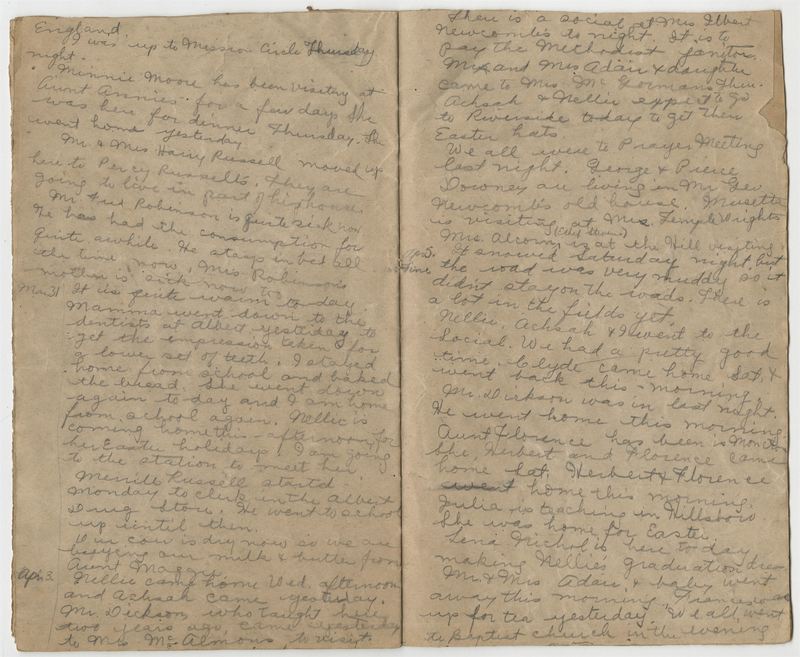 England.
I was up to Mission Circle Thursday
night.
Minnie Moore has been visiting at
Aunt Annie's for a few days She
was here for dinner Thursday. She
went home yesterday.
Mr. & Mrs Harry Russell moved up
here to Percy Russells. They are
going to live in part of his house.
Mr. Fred Robinson is quite sick now
He has had the consumption for
quite awhile. He stays in bed all
the time now, Mrs Robinson's
mother is sick now too.
Mar. 31 It is quite warm to-day.
Mamma went down to the
dentists at Albert yesterday to
get the impression taken for
a lower set of teeth. I stayed
home from school and baked
the bread. She went down
again to day and I am home
from school again. Nellie is
coming home this afternoon for
her Easter holidays. I am going
to the station to meet her.
Merrill Russell started
Monday to clerk in the Albert
Drug Store. He went to school
up until then.
Our cow is dry now so we are
buying our milk & butter from
Aunt Maggie.
Apr. 3. Nellie came home Wed. afternoon
and Achsah came yesterday.
Mr. Dickson who taught here
two years ago came yesterday
to Mrs McAlmons to visit.
There is a social at Mrs Albert
Newcombs to night. It is to
pay the Methodist janitor.
Mr and Mrs Adair & daughter
came to Mrs. McGormans Thur.
Achsah & Nellie expect to go
to Riverside today to get their
Easter hats.
We all went to Prayer Meeting
last night. George & Pierce
Downey are living in Mr Geo
Newcomb's old house. Musetta
is visiting at Mrs. Temple Wrights
Mrs. is at the Hill visiting.
Apr 5. It snowed Saturday night, but
the road was very muddy so it
didn't stay on the roads. There is
a lot in the fields yet.
Nellie, Achsah & I went to the
Social. We had a pretty good
time. Clyde came home Sat. &
went back this morning.
Mr. Dickson was in last night.
He went home this morning.
Aunt Florence has been in Moncton
She, Herbert and Florence came
home Sat. Herbert & Florence
went home this morning.
Julia is teaching in Hillsboro
She was home for Easter.
Lena Nichol is here to day
making Nellie's graduation dress
Mr. & Mrs Adair & baby went
away this morning. Frances was
up for tea yesterday. We all went
to Baptist church in the evening